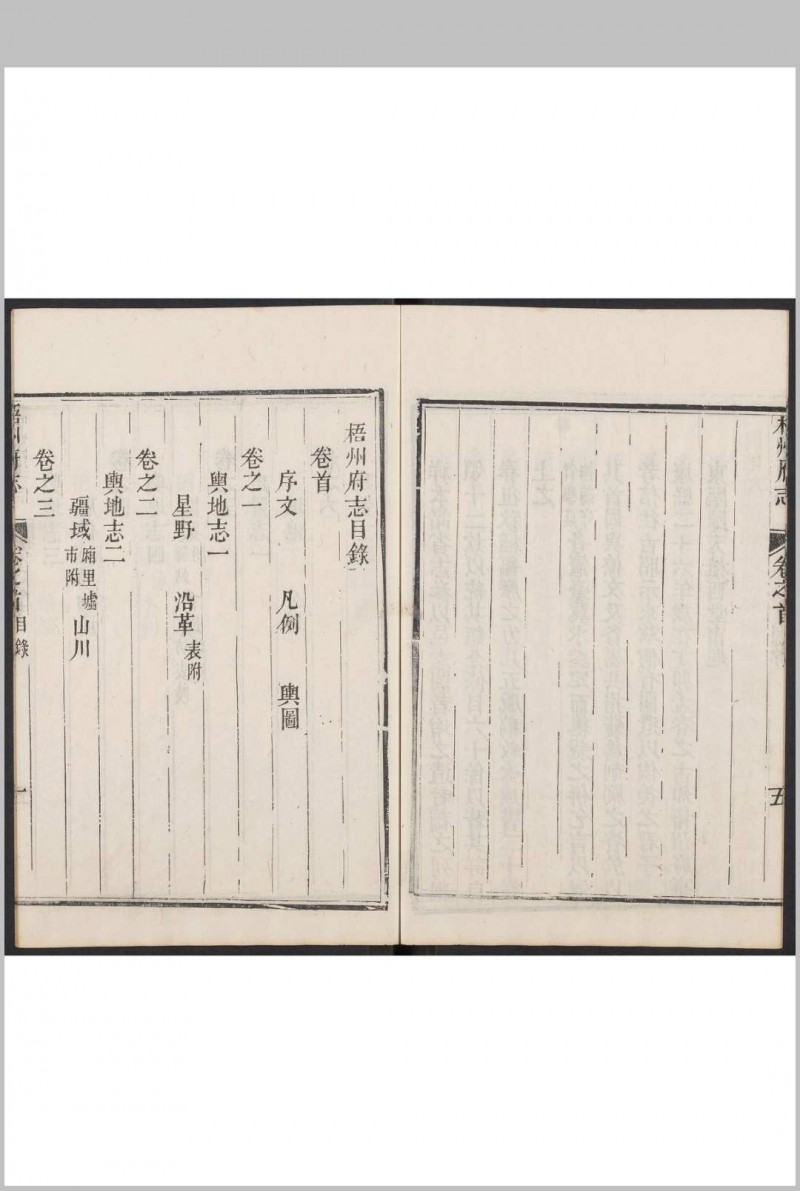 梧州府志
卷之首
五
梧州府志目錄
卷首
序文　凡例　輿圖
卷之一
輿地志一
星野　沿革表附
卷之二
輿地志二
疆域廂里墟市附　山川
卷之三
梧州府志
卷之首目錄
一